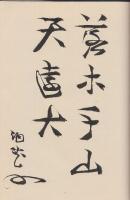 落木千山
天遠大